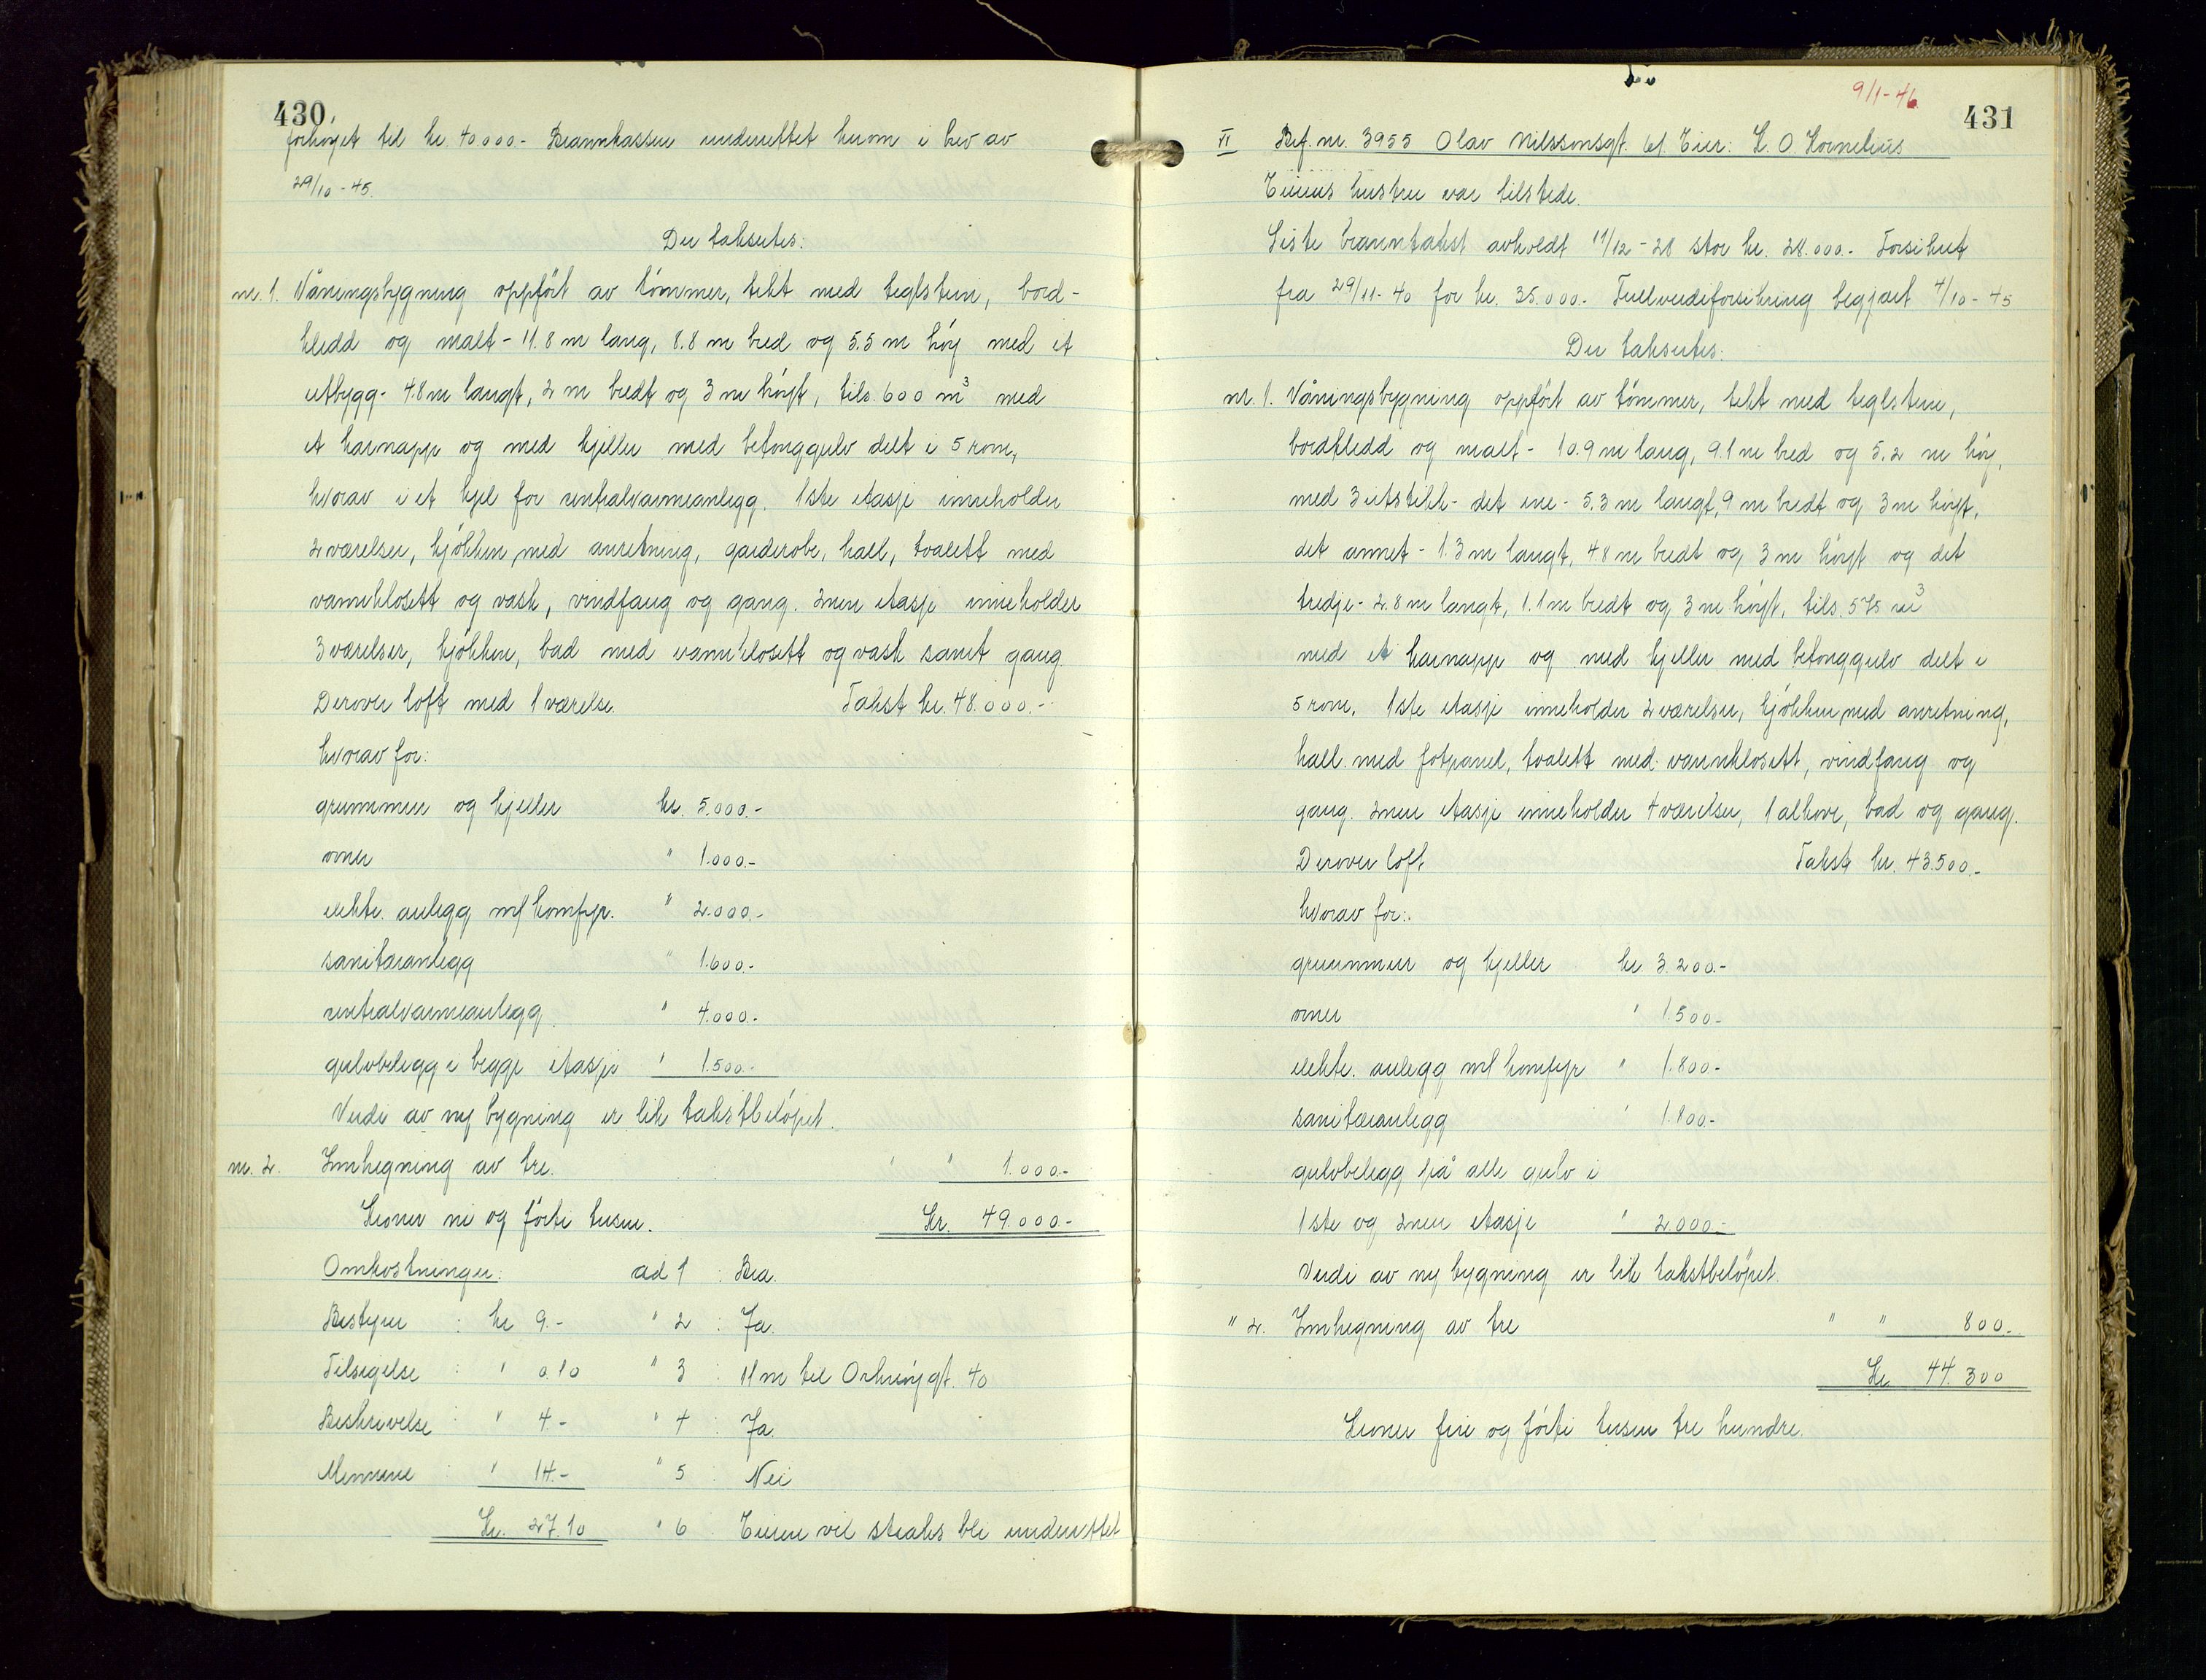 430
forhøyet til kr. 40.000.- Brannkassen underrettet herom i brev av
29/10-45.
Der takseres:
nr. 1. Våningsbygning oppført av tømmer, tekt med teglsten, bord-
kledd og malt - 11.8 m lang, 8.8 m bred og 5.5 m høy med et
utbygg - 4.8 m langt, 2 m bredt og 3 m høyt, tils. 600 m³ med
et karnapp og med kjeller med betonggulv delt i 5 rom,
hvorav i et kjel for sentralvarmeanlegg. 1ste etasje inneholder
2 værelser, kjøkken med anretning, garderobe, hall, toalett med
vannklosett og vask, vindfang og gang. 2nen etasje inneholder
3 værelser, kjøkken, bad med vannklosett og vask samt gang
Derover loft med 1 værelse. Takst kr. 48.000.-
hvorav for:
grunnmur og kjeller kr. 5.000.-
ovner " 1.000.-
elektr. anlegg m/ komfyr. " 2.000.-
sanitæranlegg " 1.600.-
sentralvarmeanlegg " 4.000.-
gulvbelegg i begge etasjer " 1.500.-
Verdi av ny bygning er lik takstbeløpet.
nr. 2. Innhegning av tre. " " 1.000.-
Kroner ni og førti tusen. Kr. 49.000.-
Omkostninger: ad 1 : Bra.
Bestyrer : kr 9.- " 2 : Ja.
Tilsigelse : " 0.10 " 3 : 11 m til Orknøygt. 40
Beskrivelse : " 4.- " 4 : Ja.
Mennene : " 14.- " 5 : Nei
Kr. 27.10 " 6 : Eieren vil straks bli underrettet
9/1-46
431
VI Bef. nr. 3955 Olav Nilssonsgt. 61. Eier: K. O. Kornelius
Eierens hustru var tilstede.
Siste branntakst avholdt 11/12-28 stor kr. 28.000.- Forsikret
fra 29/11-40 for kr. 35.000.- Fullverdiforsikring begjært 4/10-45
Der takseres:
nr. 1. Våningsbygning oppført av tømmer, tekt med teglsten,
bordkledd og malt - 10.9 m lang, 9.1 m bred og 5.2 m høy,
med 3 utstikk - det ene - 5.3 m langt, 9 m bredt og 3 m høyt,
det annet - 1.3 m langt, 4.8 m bredt og 3 m høyt og det
tredje - 2.8 m langt, 1.1 m bredt og 3 m høyt, tils. 575 m³
med et karnapp og med kjeller med betonggulv delt i
5 rom. 1ste etasje inneholder 2 værelser, kjøkken med anretning,
hall med fotpanel, toalett med vannklosett, vindfang og
gang. 2nen etasje inneholder 4 værelser, 1 alkove, bad og gang.
Derover loft Takst kr. 43.500.-
hvorav for:
grunnmur og kjeller kr. 3.200.-
ovner " 1.500.-
elektr. anlegg m/ komfyr " 1.800.-
sanitæranlegg " 1.800.-
gulvbelegg på alle gulv i
1ste og 2nen etasje " 2.000.-
Verdi av ny bygning er lik takstbeløpet.
" 2. Innhegning av tre " " 800.-
Kr. 44.300
Kroner fire og førti tusen tre hundre.